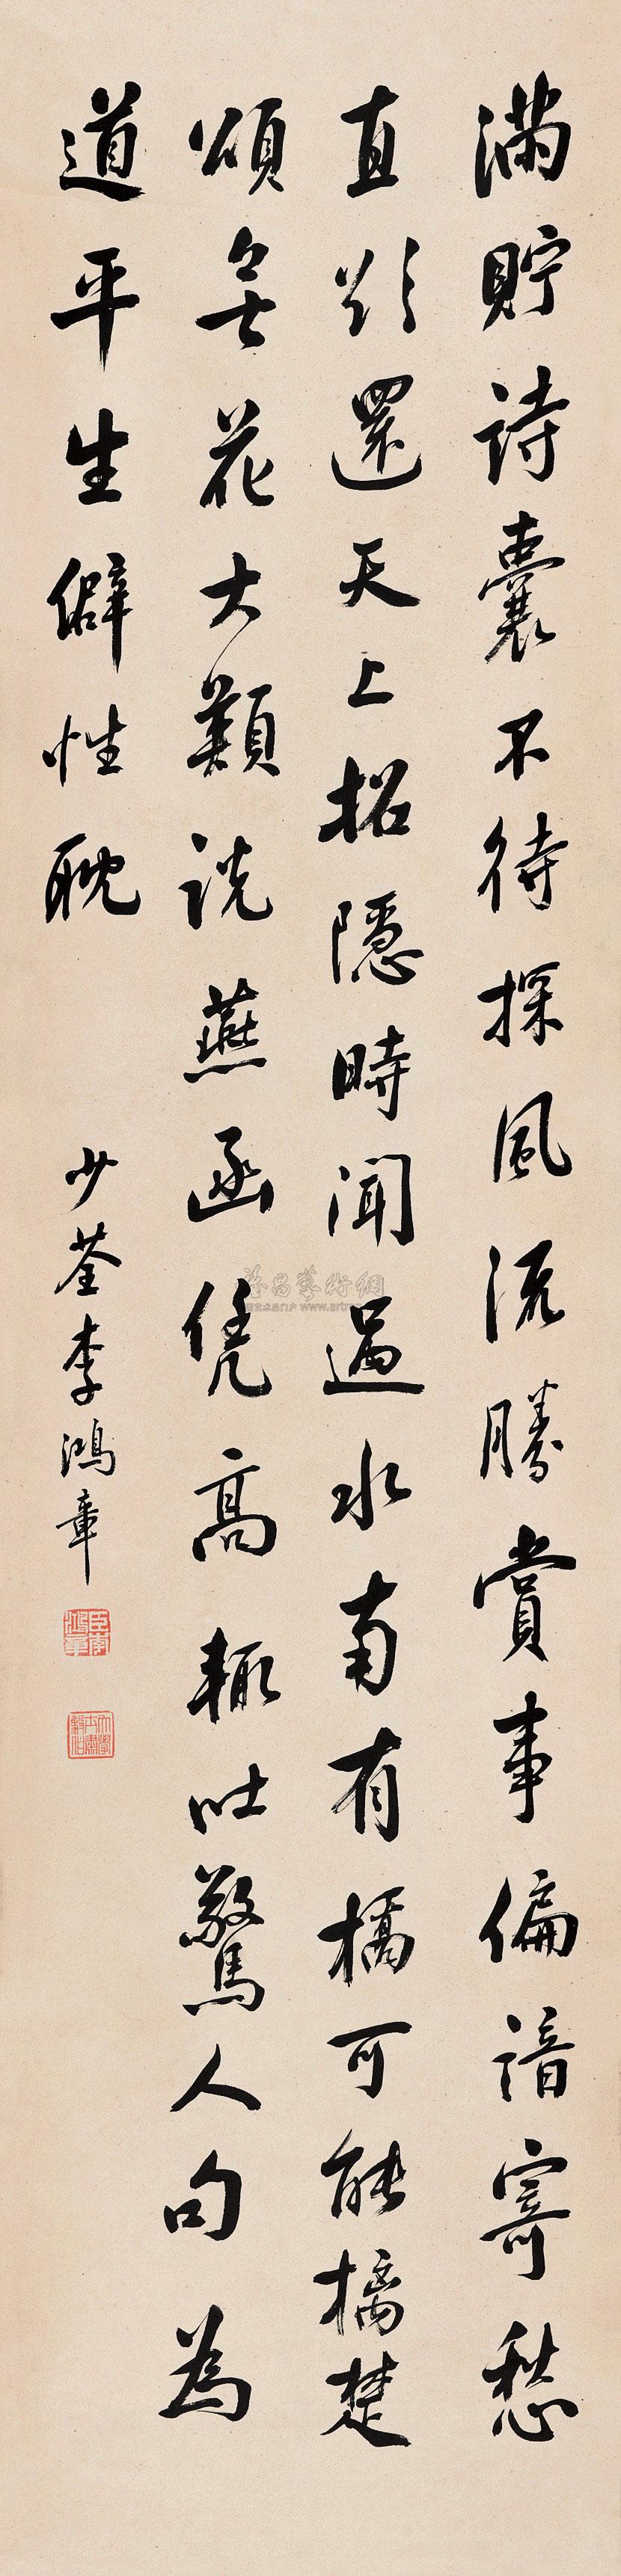 滿貯詩囊不待探風流勝賞事偏諳寄愁
直欲還天上招隱時聞過水南有橘可能摘楚
頌無花大類說燕函凭高輒吐驚人句為
道平生僻性耽
少荃李鴻章
臣李鴻章
大學士肅毅伯
雅昌藝術網